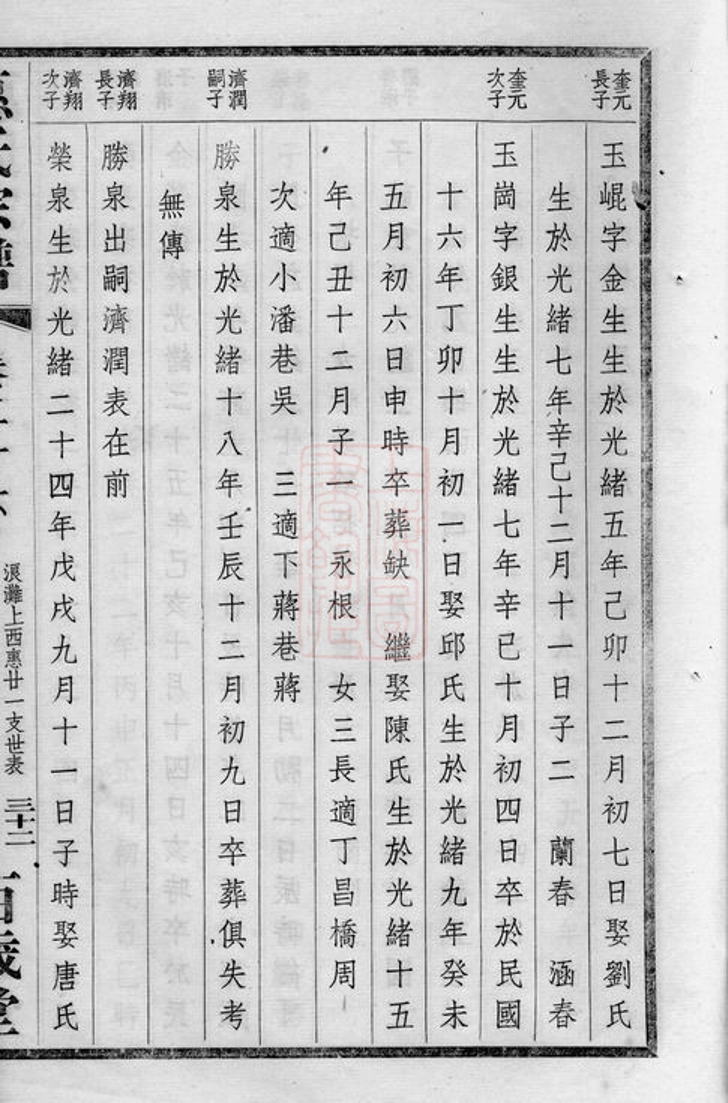 奎元長子
玉崐字金生生於光緒五年己卯十二月初七日娶劉氏
生於光緒七年辛己十二月十一日子二 蘭春 涵春
奎元次子
玉崗字銀生生於光緒七年辛巳十月初四日卒於民國
十六年丁卯十月初一日娶邱氏生於光緒九年癸未
五月初六日申時卒葬缺 繼娶陳氏生於光緒十五
年己丑十二月子一 永根 女三長適丁昌橋周
次適小潘巷吳 三適下蔣巷蔣
濟潤嗣子
勝泉生於光緒十八年壬辰十二月初九日卒葬俱失考
無傳
濟翔長子
勝泉出嗣濟潤表在前
濟翔次子
榮泉生於光緒二十四年戊戌九月十一日子時娶唐氏
浪灘上西惠廿一支世表 三十二